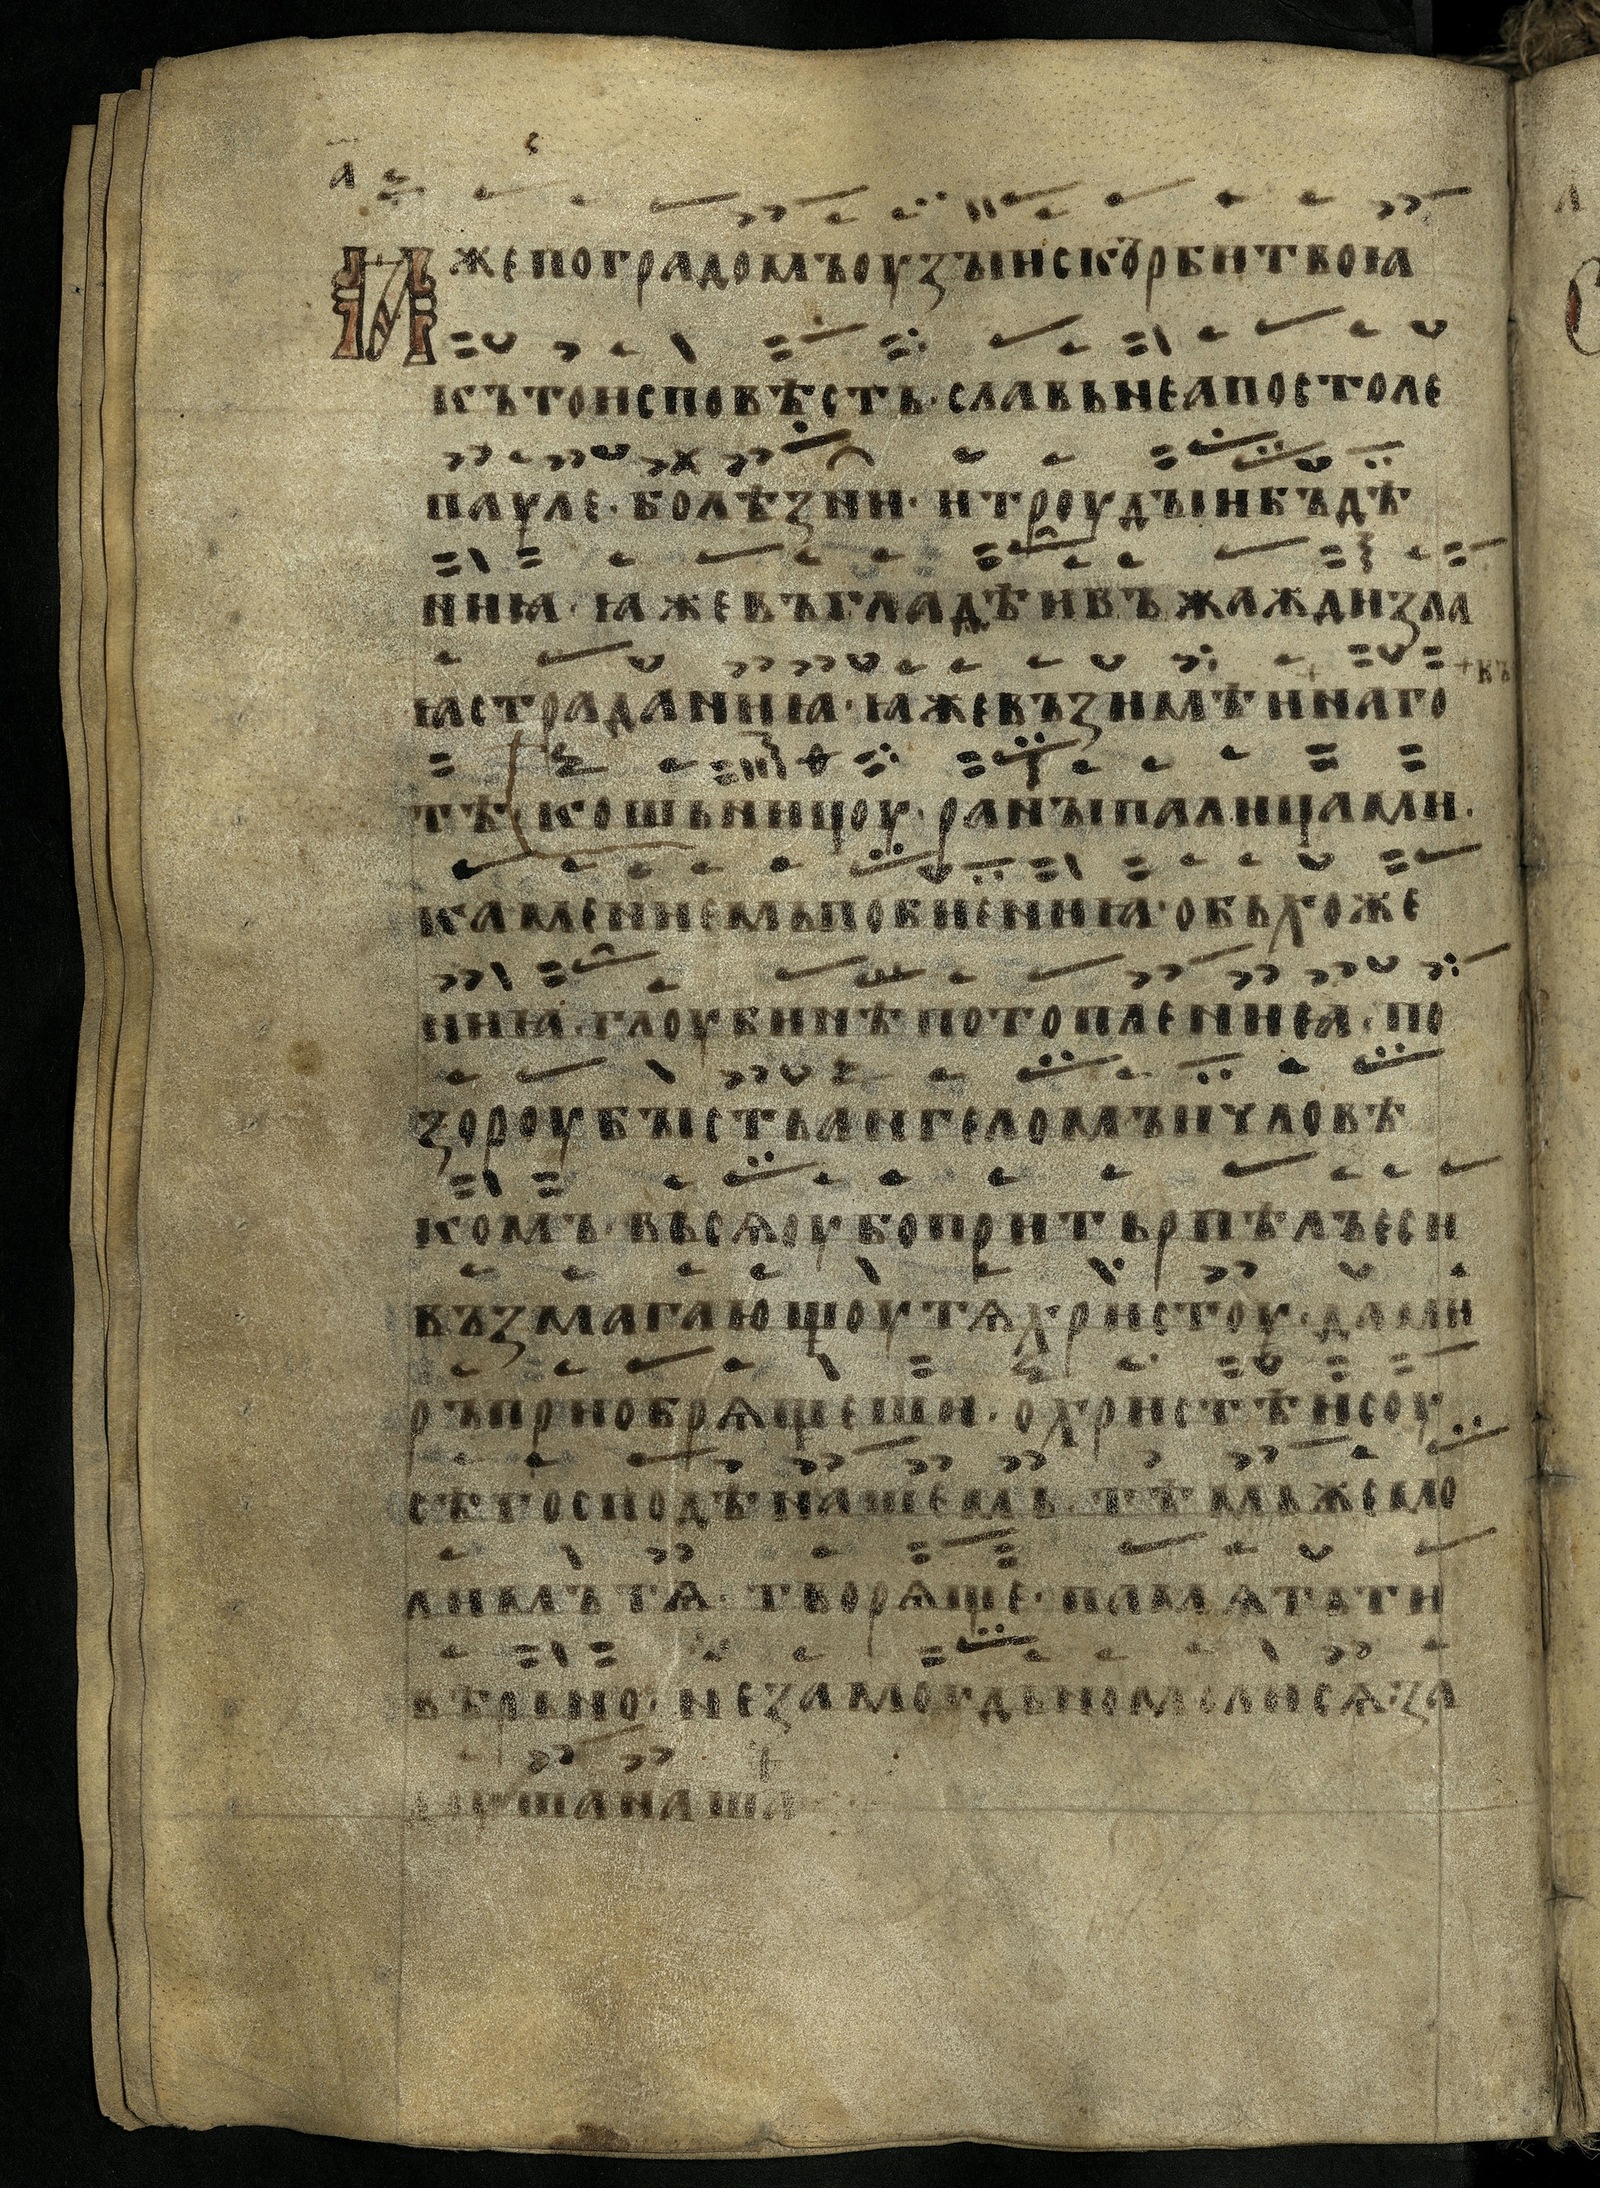 Ижепоградомъоузꙑискърбитвоꙗ
кътоисповѣсть·славьнеапостоле
пауле·болѣзни·итроудꙑибъдѣ
ниꙗ·ꙗжевъгладѣивъжажди зла
ꙗстраданиꙗ·ꙗжевъзимѣинаго
+къ
тѣ·кошьницоу·ранꙑпалицами·
камениемьпобиениꙗ·обьхоже
ниꙗ·глоубинѣпотоплениеа·по
зороубꙑстьангеломъичловѣ
комъ·вьсѧоубопритьрпѣлъеси
възмагающоутѧхристоу·дами
ръприобрѧщеши·охристѣисоу
сѣгосподѣнашемь·тѣмьжемо
лимътѧ·творѧще·памѧтьти
вѣрьно·незамоудьномолисѧ·за
доушанаша